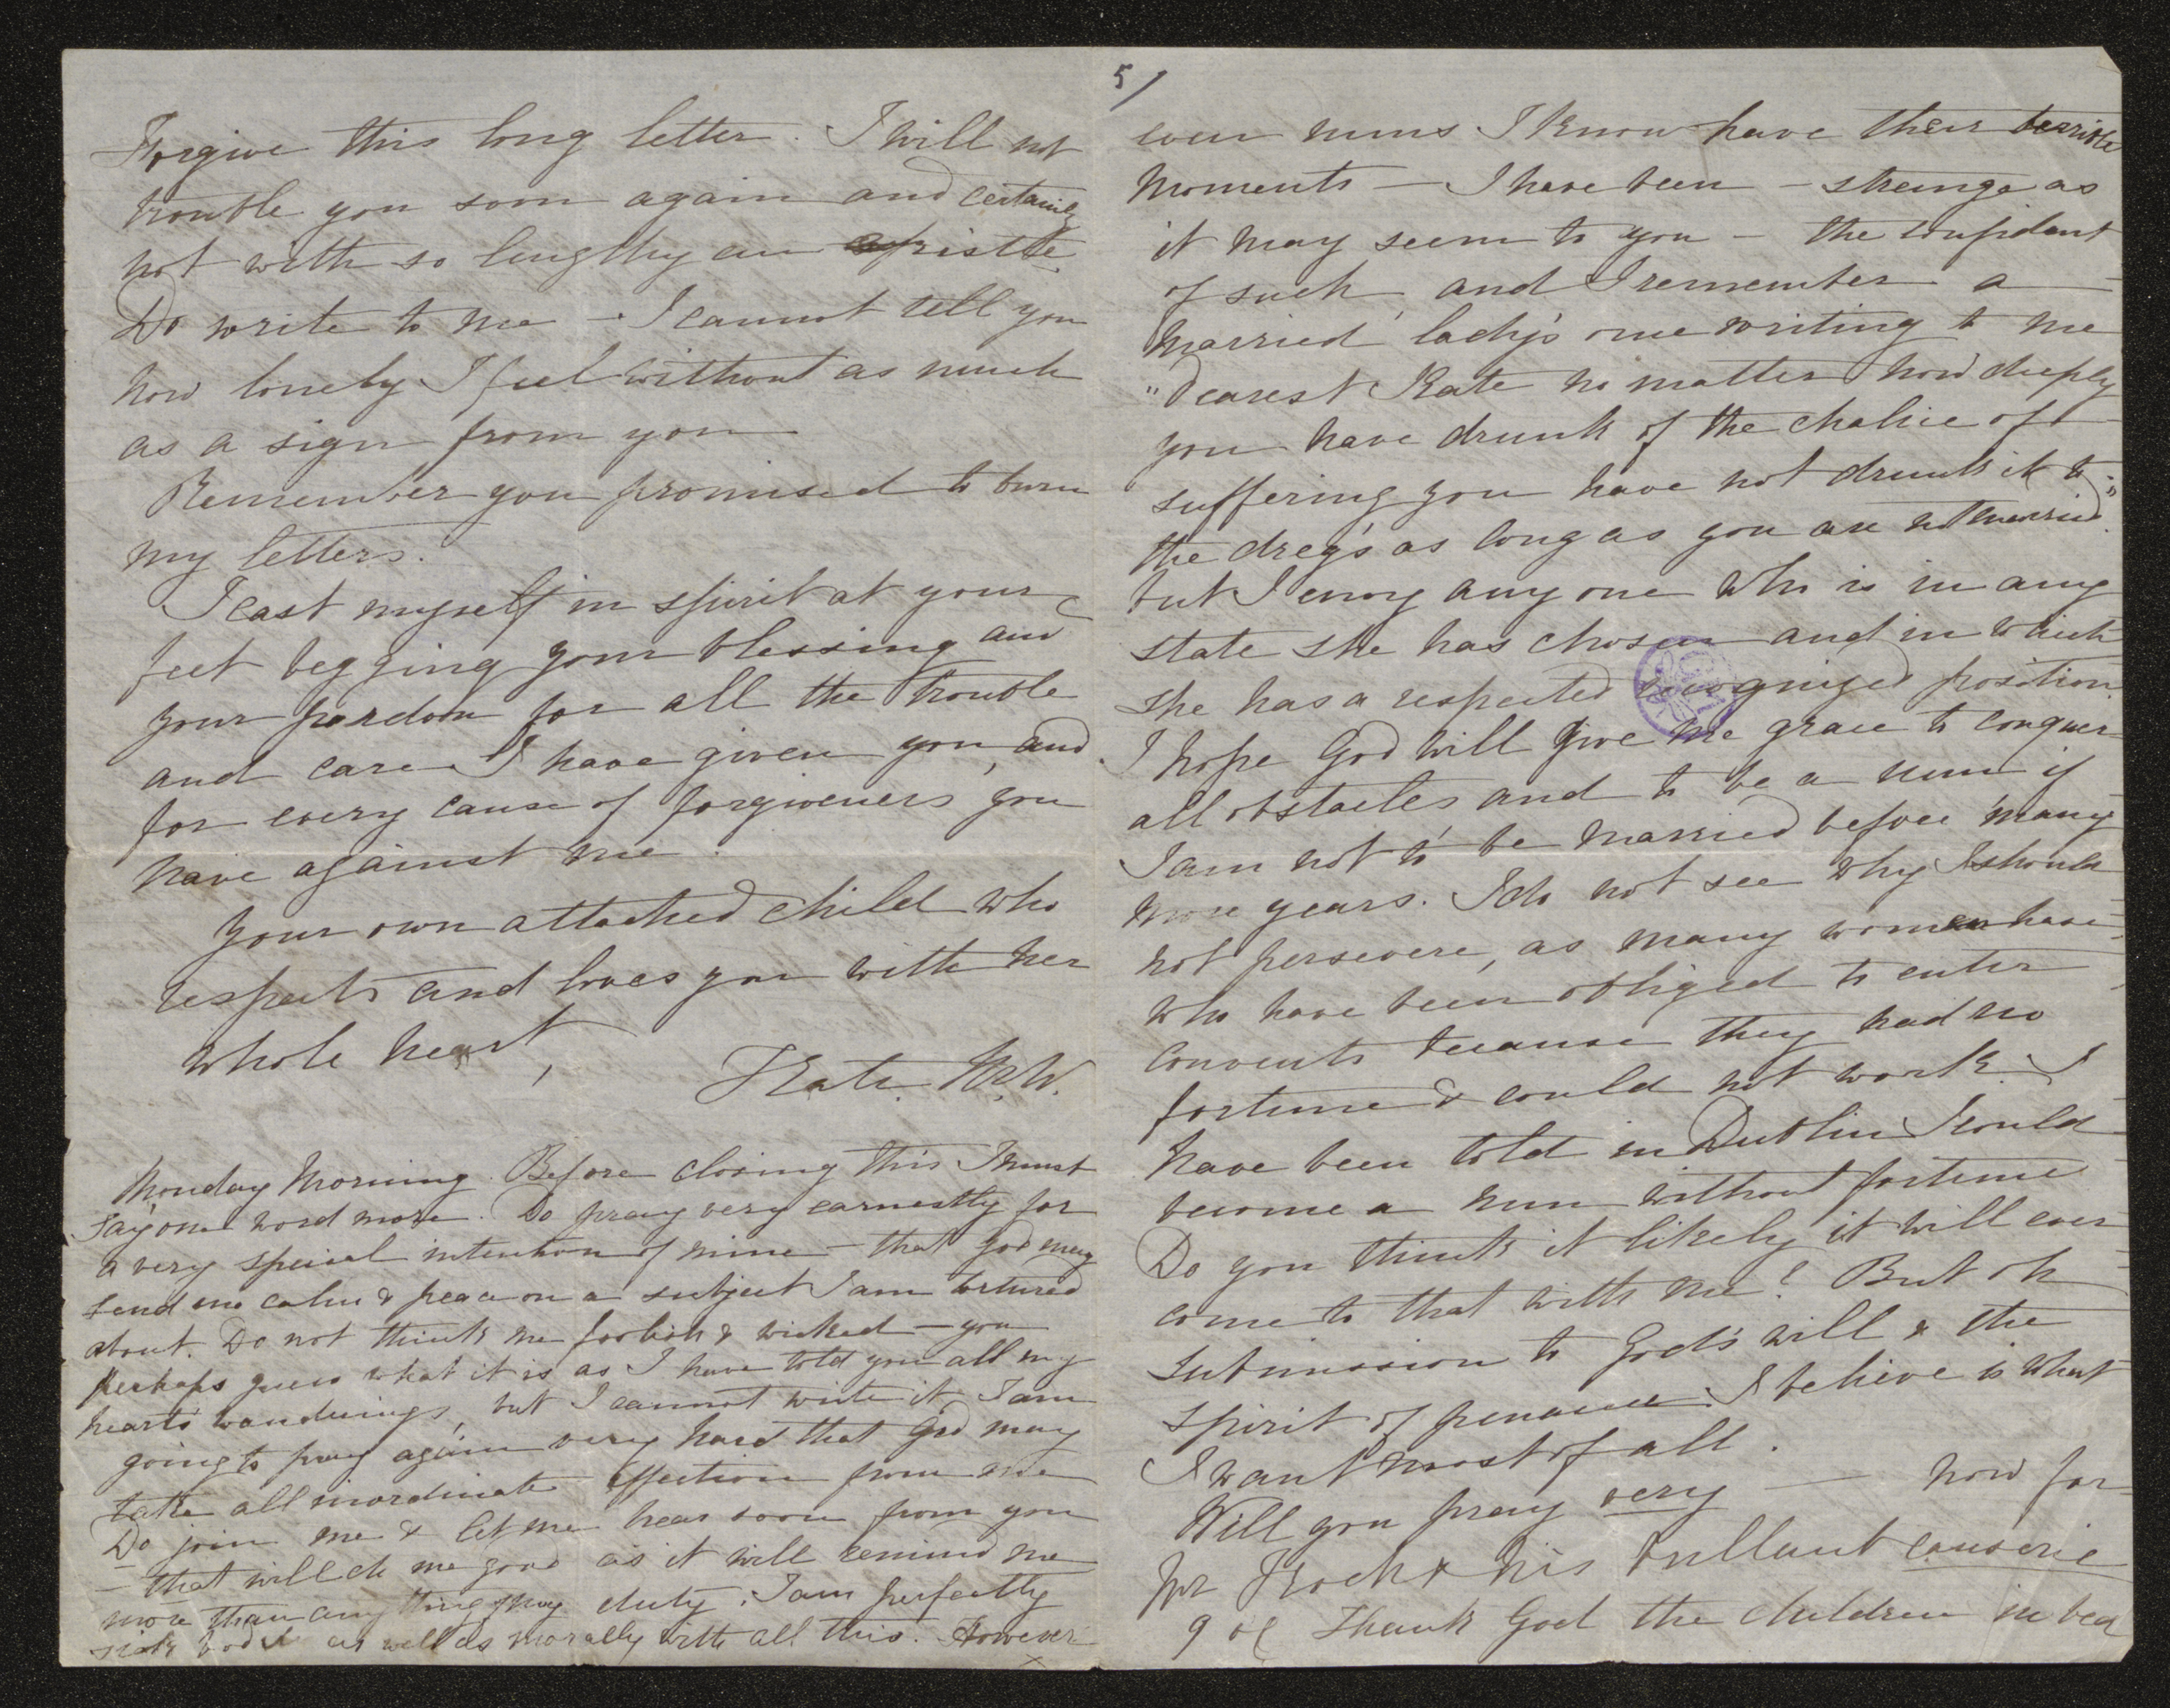 Forgive this long letter. I will not
trouble you soon again and certainly
not with so lengthy an epistle.
Do write to me – I cannot tell you
how lonely I feel without as much
as a sign from you
Remember you promised to burn
my letters.
I cast myself in spirit at your
feet begging your blessing and
your pardon for all the trouble
and care I have given you, and
for every cause of forgiveness you
have against me.
Your own attached child who
respects and loves you with her
whole heart,
Kate. M.W.
Monday Morning. Before closing this I must
say one word more. Do pray very earnestly for
a very special intention of mine – that God may
send me calm & peace on a subject I am tortured
about. Do not think me foolish & wicked – you
perhaps guess what it is as I have told you all my
heart's wanderings, but I cannot write it. I am
going to pray again very hard that God may
take all inordinate affection from me
Do join me & let me hear soon from you
– that will do me good as it will remind me
more than anything of my duty. I am perfectly
sick bodily as well as morally with all this. However
5/
even nuns I know have their terrible
moments – I have been – strange as
it may seem to you – the confidant
of such, and I remember a
married lady's once writing to me
"Dearest Kate no matter how deeply
you have drunk of the chalice of
suffering you have not drunk it to
the dregs as long as you are not married"
but I envy any one who is in any
state she has chosen and in which
she has a respected recognized position
I hope God will give me grace to conquer
all obstacles and to be a nun if
I am not to be married before many
more years. I do not see why I should
not persevere, as many women have
who have been obliged to enter
convents because they had no
fortune & could not work. I
have been told in Dublin I could
become a nun without fortune
Do you think it likely it will ever
come to that with me? But oh
submission to God's will & the
spirit of penance I believe is what
I want most of all.
Will you pray very — now for
Mr Koch & his brilliant causerie
9 ocl Thank God the children in bed